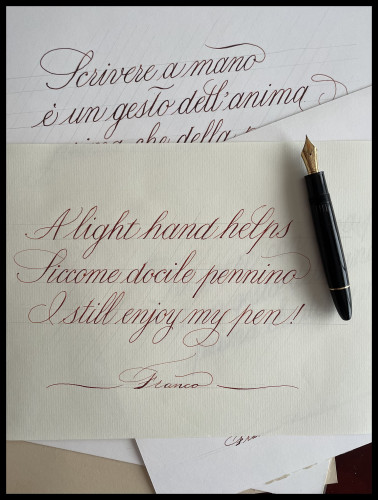 Scrivere a mano
è un gesto dell'anima
che della
A light hand helps
Siccome docile pennino
I still enjoy my pen!
Franco